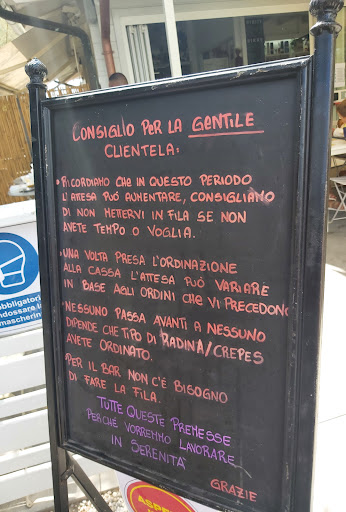 CONSIGLIO PER LA GENTILE
CLIENTELA:
• RICORDIAMO CHE IN QUESTO PERIODO
L'ATTESA PUÓ AUMENTARE, CONSIGLIAMO
DI NON METTERVI IN FILA SE NON
AVETE TEMPO O VOGLIA.
• UNA VOLTA PRESA L'ORDINAZIONE
ALLA CASSA L'ATTESA PUÓ VARIARE
IN BASE AGLI ORDINI CHE VI PRECEDONO
• NESSUNO PASSA AVANTI A NESSUNO
DIPENDE CHE TIPO DI RADINA/CREPES
AVETE ORDINATO.
• PER IL BAR NON C'È BISOGNO
DI FARE LA FILA.
TUTTE QUESTE PREMESSE
PERCHÉ VORREMMO LAVORARE
IN SERENITÀ
GRAZIE
obbligatori
indossare l
mascherin
ASPE